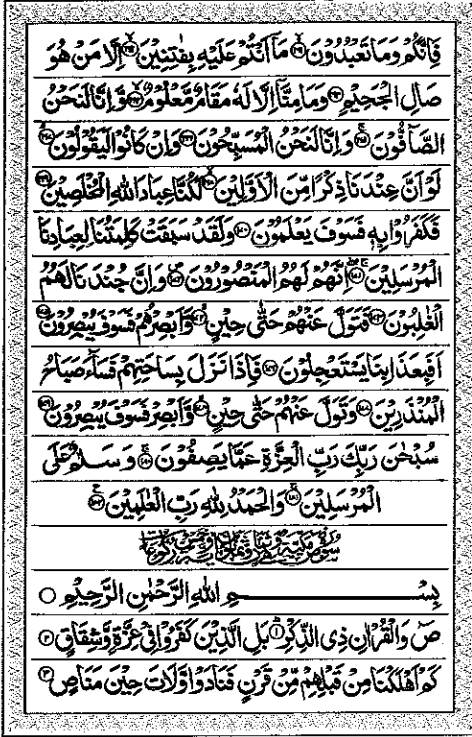 فَاِنَّكُمْ وَمَا تَعْبُدُوْنَ ۙ﴿۱۶۱﴾ مَاۤ اَنْتُمْ عَلَيْهِ بِفٰتِنِيْنَ ۙ﴿۱۶۲﴾ اِلَّا مَنْ هُوَ
صَالِ الْجَحِيْمِ ﴿۱۶۳﴾ وَمَا مِنَّاۤ اِلَّا لَهٗ مَقَامٌ مَّعْلُوْمٌ ۙ﴿۱۶۴﴾ وَّاِنَّا لَنَحْنُ
الصَّآفُّوْنَ ۚ﴿۱۶۵﴾ وَاِنَّا لَنَحْنُ الْمُسَبِّحُوْنَ ﴿۱۶۶﴾ وَاِنْ كَانُوْا لَيَقُوْلُوْنَ ۙ﴿۱۶۷﴾
لَوْ اَنَّ عِنْدَنَا ذِكْرًا مِّنَ الْاَوَّلِيْنَ ۙ﴿۱۶۸﴾ لَكُنَّا عِبَادَ اللّٰهِ الْمُخْلَصِيْنَ ﴿۱۶۹﴾
فَكَفَرُوْا بِهٖ فَسَوْفَ يَعْلَمُوْنَ ﴿۱۷۰﴾ وَلَقَدْ سَبَقَتْ كَلِمَتُنَا لِعِبَادِنَا
الْمُرْسَلِيْنَ ۚۖ﴿۱۷۱﴾ اِنَّهُمْ لَهُمُ الْمَنْصُوْرُوْنَ ۪﴿۱۷۲﴾ وَاِنَّ جُنْدَنَا لَهُمُ
الْغٰلِبُوْنَ ﴿۱۷۳﴾ فَتَوَلَّ عَنْهُمْ حَتّٰى حِيْنٍ ۙ﴿۱۷۴﴾ وَّاَبْصِرْهُمْ فَسَوْفَ يُبْصِرُوْنَ ﴿۱۷۵﴾
اَفَبِعَذَابِنَا يَسْتَعْجِلُوْنَ ﴿۱۷۶﴾ فَاِذَا نَزَلَ بِسَاحَتِهِمْ فَسَآءَ صَبَاحُ
الْمُنْذَرِيْنَ ﴿۱۷۷﴾ وَتَوَلَّ عَنْهُمْ حَتّٰى حِيْنٍ ۙ﴿۱۷۸﴾ وَّاَبْصِرْ فَسَوْفَ يُبْصِرُوْنَ ﴿۱۷۹﴾
سُبْحٰنَ رَبِّكَ رَبِّ الْعِزَّةِ عَمَّا يَصِفُوْنَ ۚ﴿۱۸۰﴾ وَسَلٰمٌ عَلَى
الْمُرْسَلِيْنَ ۚ﴿۱۸۱﴾ وَالْحَمْدُ لِلّٰهِ رَبِّ الْعٰلَمِيْنَ ﴿۱۸۲﴾
بِسْمِ اللّٰهِ الرَّحْمٰنِ الرَّحِيْمِ ○
صٓ وَالْقُرْاٰنِ ذِى الذِّكْرِ ؕ﴿۱﴾ بَلِ الَّذِيْنَ كَفَرُوْا فِىْ عِزَّةٍ وَّشِقَاقٍ ﴿۲﴾
كَمْ اَهْلَكْنَا مِنْ قَبْلِهِمْ مِّنْ قَرْنٍ فَنَادَوْا وَّلَاتَ حِيْنَ مَنَاصٍ ﴿۳﴾